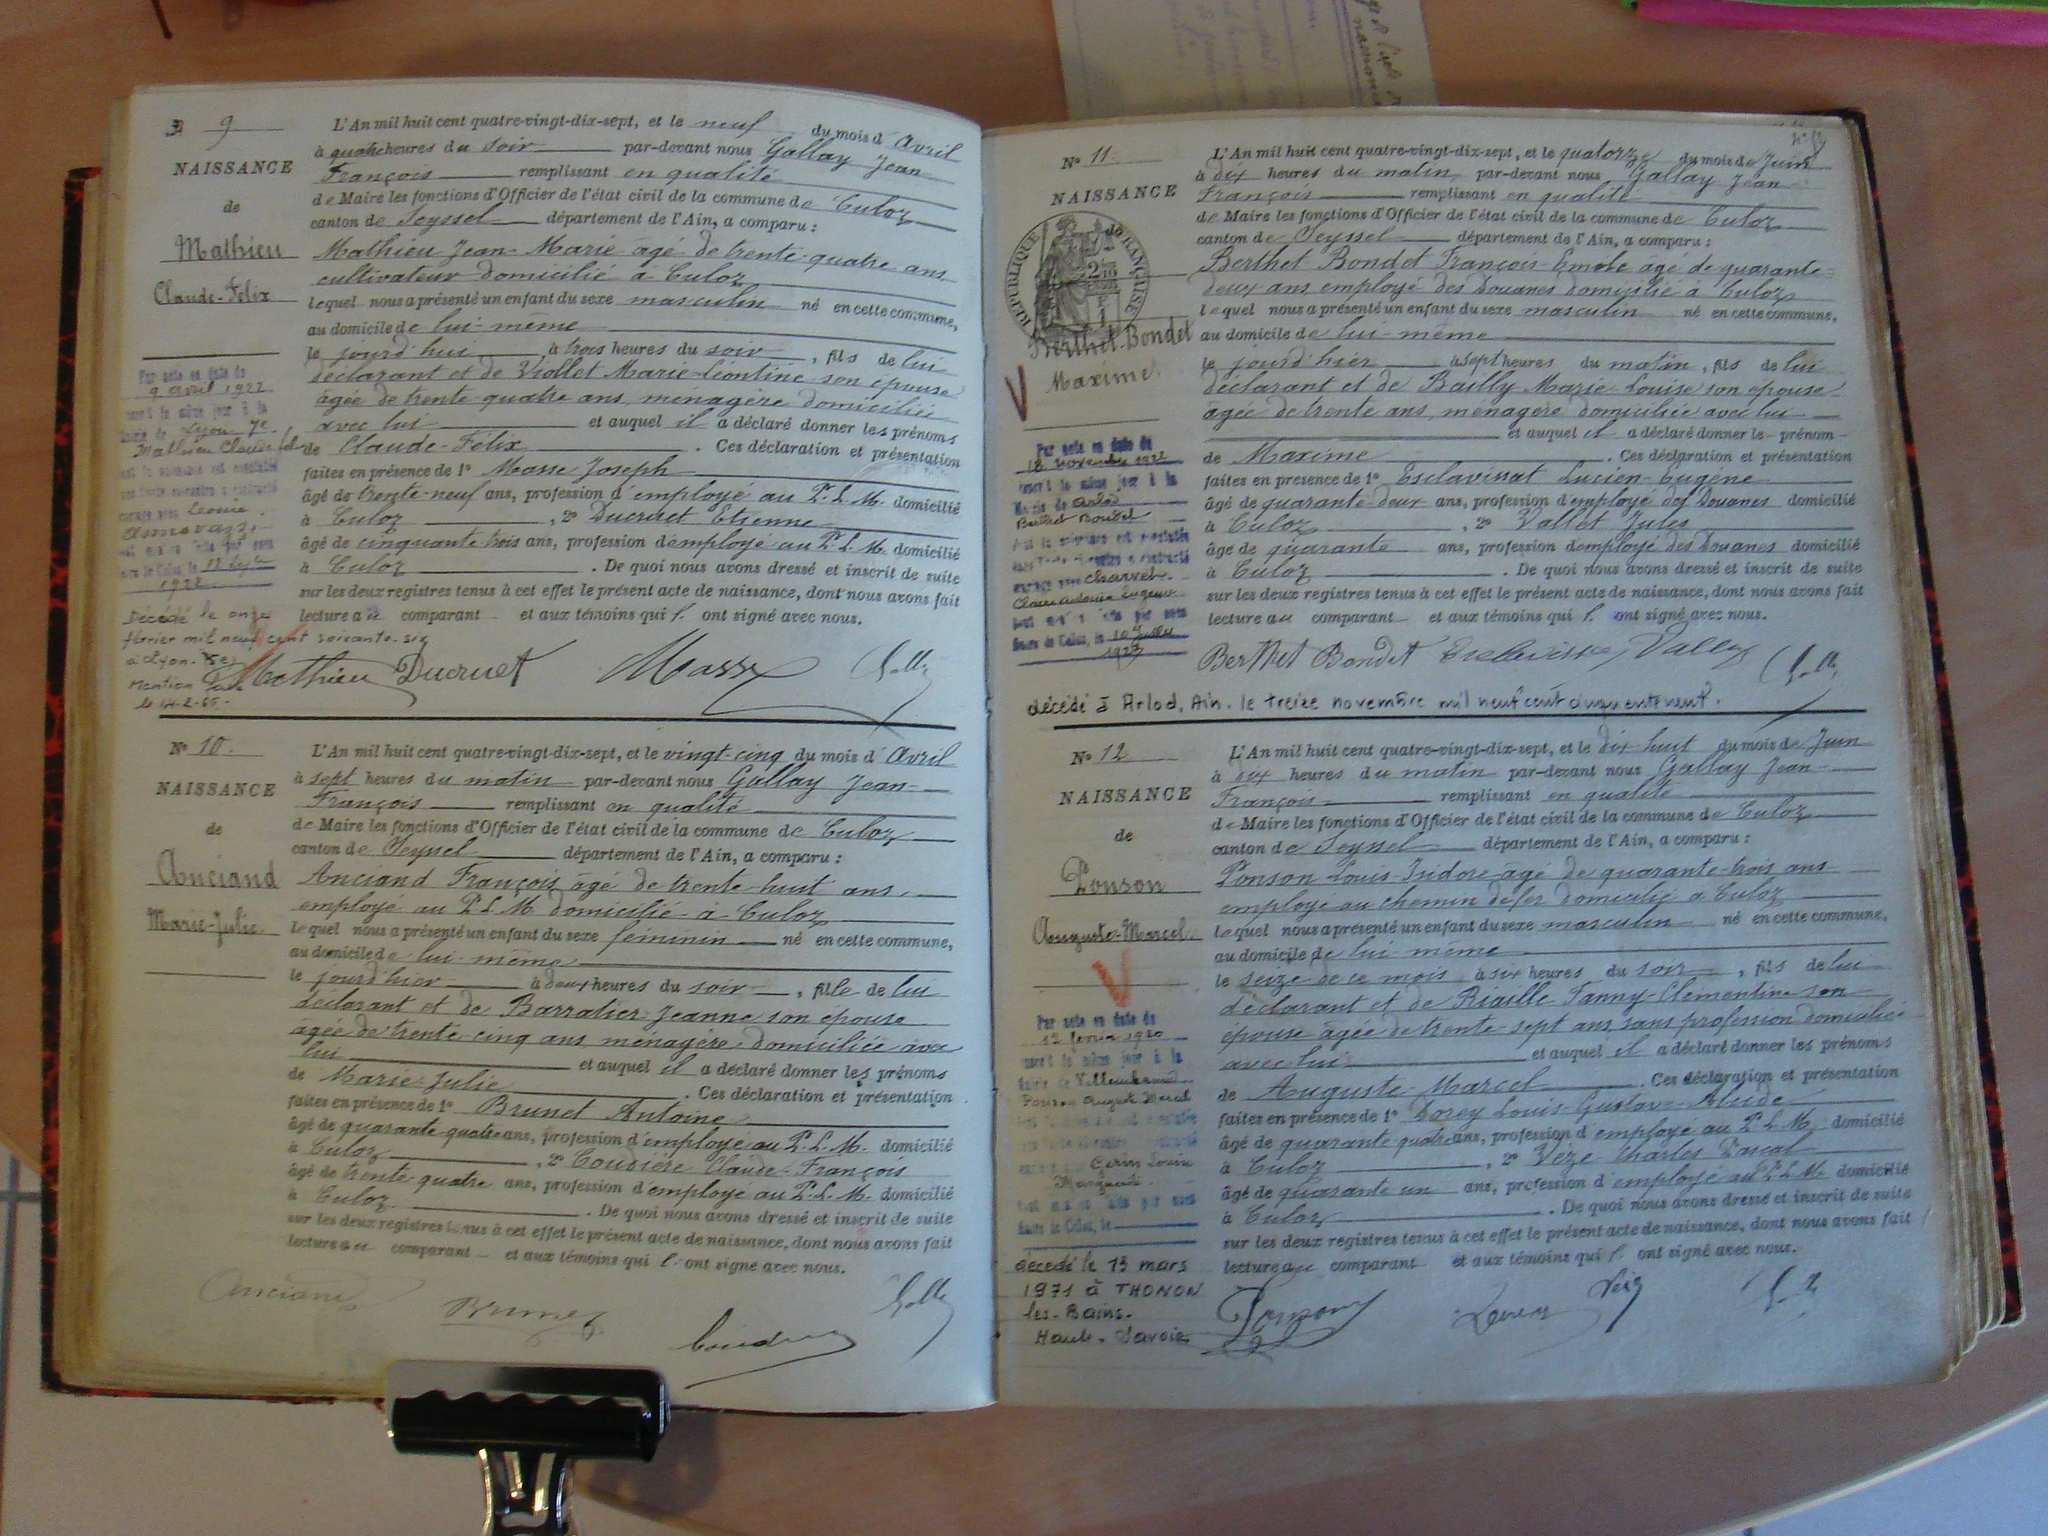 9
NAISSANCE
de
Mathieu
Claude-Félix
L'An mil huit cent quatre-vingt-dix-sept, et le neuf du mois d'Avril
à quatre heures du soir par-devant nous Gallay Jean
François remplissant en qualité
de Maire les fonctions d'Officier de l'état civil de la commune de Culoz
canton de Seyssel département de l'Ain, a comparu :
Mathieu Jean-Marie âgé de trente-quatre ans
cultivateur domicilié à Culoz
lequel nous a présenté un enfant du sexe masculin né en cette commune,
au domicile de lui-même
le jourd'hui à trois heures du soir, fils de lui
déclarant et de Viollet Marie-Léontine son épouse
âgée de trente-quatre ans, ménagère domiciliée
avec lui et auquel il a déclaré donner les prénoms
de Claude-Félix. Ces déclaration et présentation
faites en présence de 1° Masse Joseph
âgé de trente-neuf ans, profession d'employé au P.L.M. domicilié
à Culoz, 2° Ducruet Etienne
âgé de cinquante trois ans, profession d'employé au P.L.M. domicilié
à Culoz. De quoi nous avons dressé et inscrit de suite
sur les deux registres tenus à cet effet le présent acte de naissance, dont nous avons fait
lecture au comparant et aux témoins qui l' ont signé avec nous.
Par acte en date du
9 avril 1922
Lyon 7e
Mathieu Claude
Léonie
1922
Décédé le onze
février mil neuf cent soixante-six
à Lyon
Mention
le 14-2-66.
Mathieu Ducruet Masse
N° 10.
NAISSANCE
de
Anciand
Marie-Julie
L'An mil huit cent quatre-vingt-dix-sept, et le vingt-cinq du mois d'Avril
à sept heures du matin par-devant nous Gallay Jean-
François remplissant en qualité
de Maire les fonctions d'Officier de l'état civil de la commune de Culoz
canton de Seyssel département de l'Ain, a comparu :
Anciand François âgé de trente-huit ans,
employé au P.L.M. domicilié à Culoz
lequel nous a présenté un enfant du sexe féminin né en cette commune,
au domicile de lui-même
le jourd'hier à deux heures du soir, fille de lui
déclarant et de Barralier Jeanne son épouse
âgée de trente cinq ans, ménagère, domiciliée avec
lui et auquel il a déclaré donner les prénoms
de Marie-Julie. Ces déclaration et présentation
faites en présence de 1° Brunet Antoine
âgé de quarante-quatre ans, profession d'employé au P.L.M. domicilié
à Culoz, 2° Coudière Claude-François
âgé de trente-quatre ans, profession d'employé au P.L.M. domicilié
à Culoz. De quoi nous avons dressé et inscrit de suite
sur les deux registres tenus à cet effet le présent acte de naissance, dont nous avons fait
lecture au comparant et aux témoins qui l' ont signé avec nous.
Anciand Brunet
N° 11.
NAISSANCE
RÉPUBLIQUE FRANÇAISE
Berthet-Bondet
Maxime
L'An mil huit cent quatre-vingt-dix-sept, et le quatorze du mois de Juin
à dix heures du matin, par-devant nous Gallay Jean
François remplissant en qualité
de Maire les fonctions d'Officier de l'état civil de la commune de Culoz
canton de Seyssel département de l'Ain, a comparu :
Berthet Bondet François âgé de quarante-
deux ans employé des Douanes domicilié à Culoz
lequel nous a présenté un enfant du sexe masculin né en cette commune,
au domicile de lui-même
le jourd'hier à sept heures du matin, fils de lui
déclarant et de Bailly Marie-Louise son épouse
âgée de trente ans, ménagère domiciliée avec lui
et auquel il a déclaré donner le prénom
de Maxime. Ces déclaration et présentation
faites en présence de 1° Esclavissat Lucien-Eugène
âgé de quarante deux ans, profession d'employé des Douanes domicilié
à Culoz, 2° Vallet Jules
âgé de quarante ans, profession d'employé des Douanes domicilié
à Culoz. De quoi nous avons dressé et inscrit de suite
sur les deux registres tenus à cet effet le présent acte de naissance, dont nous avons fait
lecture au comparant et aux témoins qui l' ont signé avec nous.
Par acte en date du
18 novembre 1922
Arlod
Berthet Bondet
Charvet
Maire de Culoz, le 10 Juillet
1923
Berthet Bondet
décédé à Arlod, Ain. le treize novembre mil neuf cent cinquante neuf.
N° 12
NAISSANCE
de
Ponson
Auguste-Marcel
L'An mil huit cent quatre-vingt-dix-sept, et le dix-huit du mois de Juin
à dix heures du matin par-devant nous Gallay Jean-
François remplissant en qualité
de Maire les fonctions d'Officier de l'état civil de la commune de Culoz
canton de Seyssel département de l'Ain, a comparu :
Ponson Louis-Isidore âgé de quarante-trois ans
employé au chemin de fer domicilié à Culoz
lequel nous a présenté un enfant du sexe masculin né en cette commune,
au domicile de lui-même
le seize de ce mois, à six heures du soir, fils de lui
déclarant et de Riaille Fanny-Clémentine son
épouse âgée de trente-sept ans sans profession domiciliée
avec lui et auquel il a déclaré donner les prénoms
de Auguste-Marcel. Ces déclaration et présentation
faites en présence de 1° Dorey Louis-Gustave
âgé de quarante quatre ans, profession d'employé au P.L.M. domicilié
à Culoz, 2° Charles Pascal
âgé de quarante un ans, profession d'employé au P.L.M. domicilié
à Culoz. De quoi nous avons dressé et inscrit de suite
sur les deux registres tenus à cet effet le présent acte de naissance, dont nous avons fait
lecture au comparant et aux témoins qui l' ont signé avec nous.
Par acte en date du
1920
Maire de Culoz, le
décédé le 13 mars
1971 à THONON
les-Bains-
Haute-Savoie
Ponson